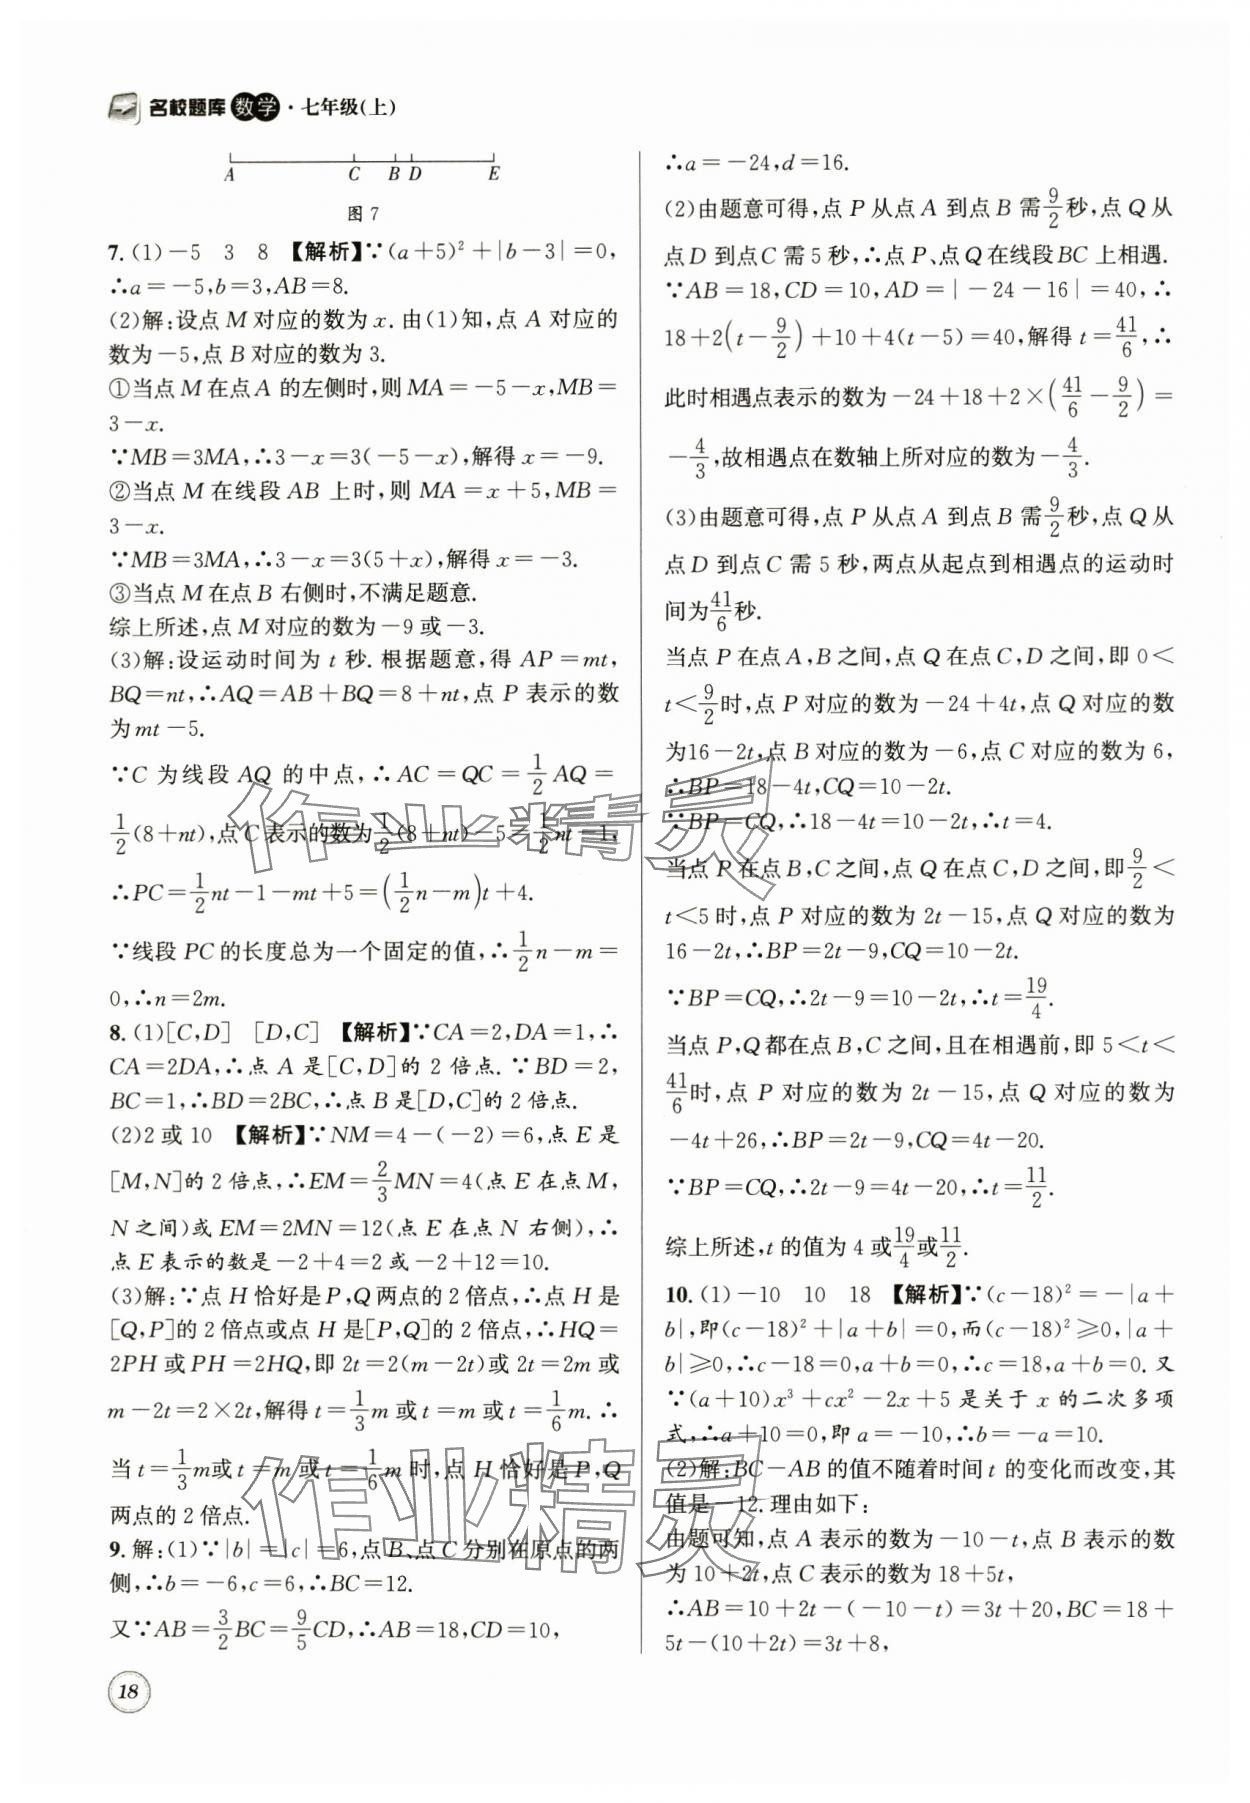 名校题库 数学·七年级(上)
A C B D E
图 7
7. (1)－5 3 8 【解析】∵(a＋5)²＋|b－3|＝0,
∴a＝－5,b＝3,AB＝8.
(2)解:设点 M 对应的数为 x. 由(1)知,点 A 对应的
数为－5,点 B 对应的数为 3.
①当点 M 在点 A 的左侧时,则 MA＝－5－x,MB＝
3－x.
∵MB＝3MA,∴3－x＝3(－5－x),解得 x＝－9.
②当点 M 在线段 AB 上时,则 MA＝x＋5,MB＝
3－x.
∵MB＝3MA,∴3－x＝3(5＋x),解得 x＝－3.
③当点 M 在点 B 右侧时,不满足题意.
综上所述,点 M 对应的数为－9 或－3.
(3)解:设运动时间为 t 秒. 根据题意,得 AP＝mt,
BQ＝nt,∴AQ＝AB＋BQ＝8＋nt,点 P 表示的数
为 mt－5.
∵C 为线段 AQ 的中点,∴AC＝QC＝1/2 AQ＝
1/2(8＋nt),点 C 表示的数为1/2(8＋nt)－5＝1/2nt－1,
∴PC＝1/2nt－1－mt＋5＝(1/2n－m)t＋4.
∵线段 PC 的长度总为一个固定的值,∴1/2n－m＝
0,∴n＝2m.
8. (1)[C,D] [D,C] 【解析】∵CA＝2,DA＝1,∴
CA＝2DA,∴点 A 是[C,D]的 2 倍点. ∵BD＝2,
BC＝1,∴BD＝2BC,∴点 B 是[D,C]的 2 倍点.
(2)2 或 10 【解析】∵NM＝4－(－2)＝6,点 E 是
[M,N]的 2 倍点,∴EM＝2/3MN＝4(点 E 在点 M,
N 之间)或 EM＝2MN＝12(点 E 在点 N 右侧),∴
点 E 表示的数是－2＋4＝2 或－2＋12＝10.
(3)解:∵点 H 恰好是 P,Q 两点的 2 倍点,∴点 H 是
[Q,P]的 2 倍点或点 H 是[P,Q]的 2 倍点,∴HQ＝
2PH 或 PH＝2HQ,即 2t＝2(m－2t)或 2t＝2m 或
m－2t＝2×2t,解得 t＝1/3m 或 t＝m 或 t＝1/6m. ∴
当 t＝1/3m或 t＝m 或 t＝1/6m 时,点 H 恰好是 P,Q
两点的 2 倍点.
9. 解:(1)∵|b|＝|c|＝6,点 B、点 C 分别在原点的两
侧,∴b＝－6,c＝6,∴BC＝12.
又∵AB＝3/2BC＝9/5CD,∴AB＝18,CD＝10,
18
∴a＝－24,d＝16.
(2)由题意可得,点 P 从点 A 到点 B 需9/2秒,点 Q 从
点 D 到点 C 需 5 秒,∴点 P、点 Q 在线段 BC 上相遇.
∵AB＝18,CD＝10,AD＝|－24－16|＝40,∴
18＋2(t－9/2)＋10＋4(t－5)＝40,解得 t＝41/6,∴
此时相遇点表示的数为－24＋18＋2×(41/6－9/2)＝
－4/3,故相遇点在数轴上所对应的数为－4/3.
(3)由题意可得,点 P 从点 A 到点 B 需9/2秒,点 Q 从
点 D 到点 C 需 5 秒,两点从起点到相遇点的运动时
间为41/6秒.
当点 P 在点 A,B 之间,点 Q 在点 C,D 之间,即 0＜
t＜9/2时,点 P 对应的数为－24＋4t,点 Q 对应的数
为16－2t,点 B 对应的数为－6,点 C 对应的数为 6,
∴BP＝18－4t,CQ＝10－2t.
∵BP＝CQ,∴18－4t＝10－2t,∴t＝4.
当点 P 在点 B,C 之间,点 Q 在点 C,D 之间,即9/2＜
t＜5 时,点 P 对应的数为 2t－15,点 Q 对应的数为
16－2t,∴BP＝2t－9,CQ＝10－2t.
∵BP＝CQ,∴2t－9＝10－2t,∴t＝19/4.
当点 P,Q 都在点 B,C 之间,且在相遇前,即 5＜t＜
41/6时,点 P 对应的数为 2t－15,点 Q 对应的数为
－4t＋26,∴BP＝2t－9,CQ＝4t－20.
∵BP＝CQ,∴2t－9＝4t－20,∴t＝11/2.
综上所述,t 的值为 4 或19/4或11/2.
10. (1)－10 10 18 【解析】∵(c－18)²＝－|a＋
b|,即(c－18)²＋|a＋b|＝0,而(c－18)²≥0,|a＋
b|≥0,∴c－18＝0,a＋b＝0,∴c＝18,a＋b＝0. 又
∵(a＋10)x³＋cx²－2x＋5 是关于 x 的二次多项
式,∴a＋10＝0,即 a＝－10,∴b＝－a＝10.
(2)解:BC－AB 的值不随着时间 t 的变化而改变,其
值是－12. 理由如下:
由题可知,点 A 表示的数为－10－t,点 B 表示的数
为 10＋2t,点 C 表示的数为 18＋5t,
∴AB＝10＋2t－(－10－t)＝3t＋20,BC＝18＋
5t－(10＋2t)＝3t＋8,
作业精灵
作业精灵